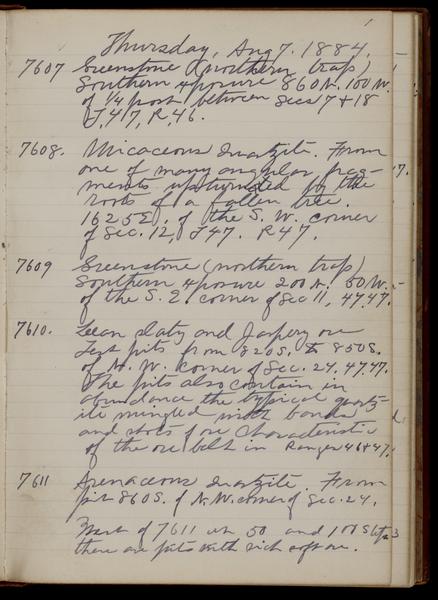 Thursday, Aug 7. 1884.
7607 Greenstone (northern trap)
Southern exposure 860 N. 100 W.
of 1/4 post between Secs 7 + 18
T. 47, R. 46.
7608. Micaceous Quartzite. From
one of many angular frag-
ments upturned by the
roots of a fallen tree.
1625 E, of the S. W. corner
of Sec. 12, T47. R47.
7609 Greenstone (northern trap)
Southern exposure 200 N. 50 W.
of the S. E. corner of Sec 11, 47.47.
7610. Lean slaty and Jaspery ore
Test pits from 820 S. to 850 S.
of N. W. corner of Sec. 24, 47.47.
The pits also contain in
abundance the typical quartz-
ite mingled with bands
and spots of ore characteristic
of the ore belt in Ranges 46 + 47.
7611 Arenaceous Quartzite. From
pit 860 S. of N. W. corner of Sec. 24.
West of 7611 at 50 and 100 Steps
there are pits with rich soft ore.